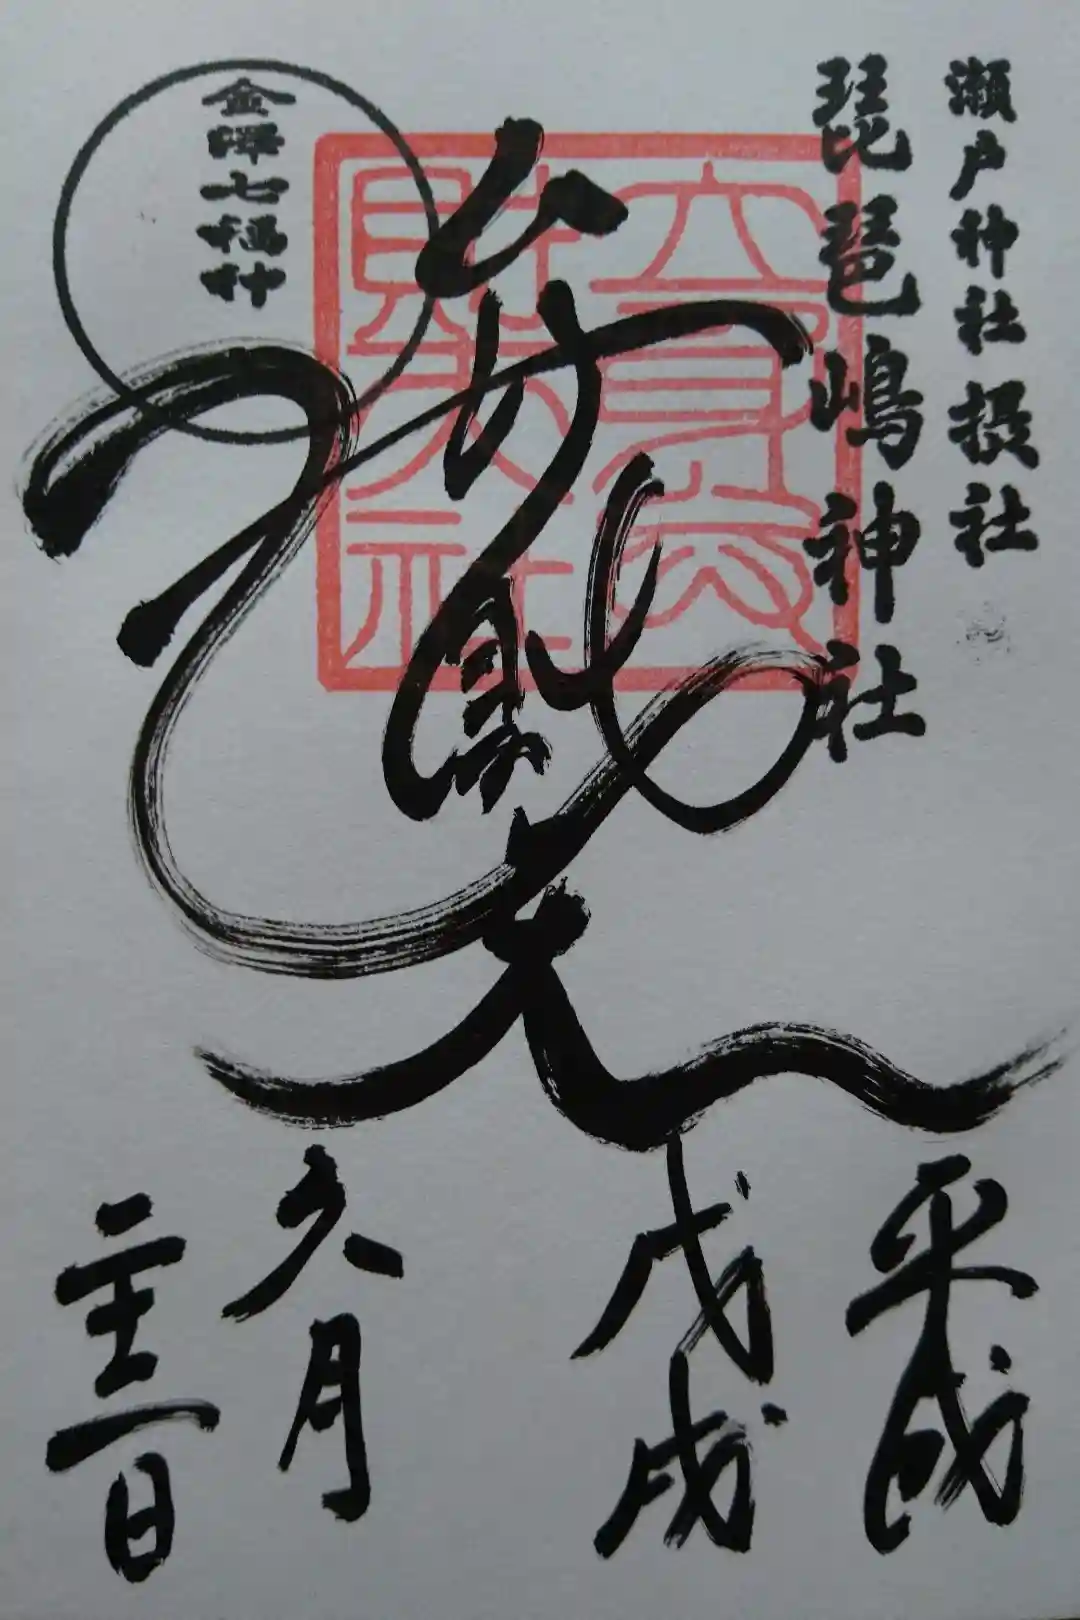 瀬戸神社摂社
琵琶嶋神社
立身弁
財天社
弁財天
金澤七福神
平成
戊戌
月
日